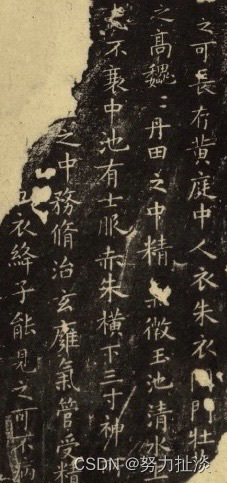 之可長存黃庭中人衣朱衣關門牡
之高魏魏丹田之中精氣微玉池清水上
不衰中池有士服赤朱橫下三寸神
之中務脩治玄廱氣管受精
衣絳子能見之可不病
CSDN @努力扯淡